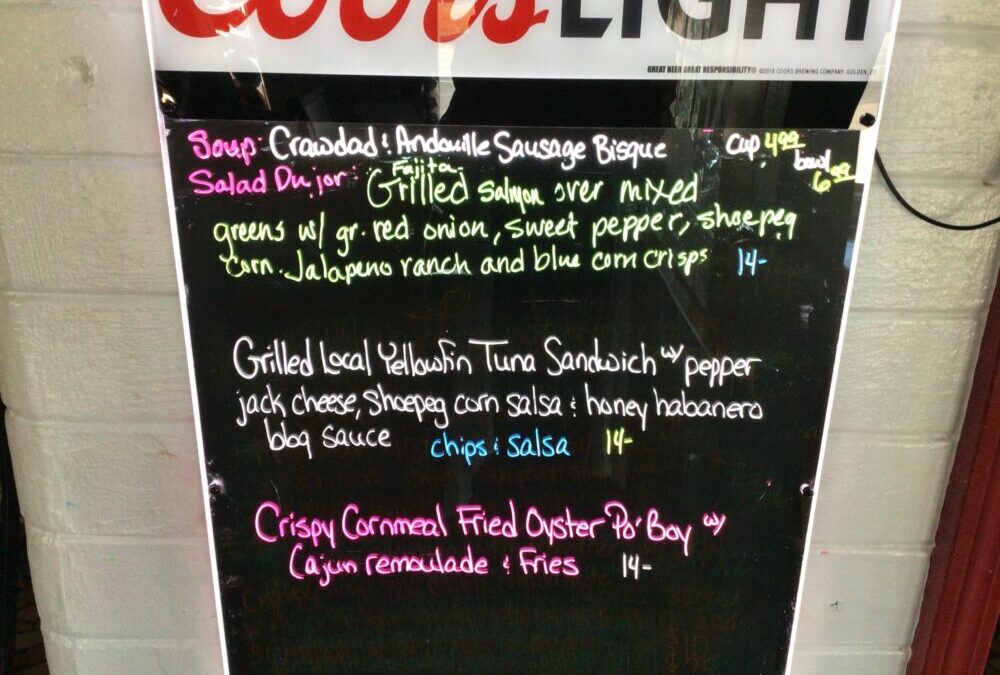 Coors LIGHT
GREAT BEER GREAT RESPONSIBILITY® ©2019 COORS BREWING COMPANY, GOLDEN,
Soup: Crawdad & Andouille Sausage Bisque Cup 4.99
bowl 6.99
Salad Du jor: Fajita Grilled Salmon over mixed
greens w/ gr. red onion, sweet pepper, shoepeg
corn. Jalapeno ranch and blue corn crisps 14-
Grilled Local Yellowfin Tuna Sandwich w/ pepper
jack cheese, shoepeg corn salsa & honey habanero
bbq sauce chips & salsa 14-
Crispy Cornmeal Fried Oyster Po' Boy w/
Cajun remoulade & Fries 14-